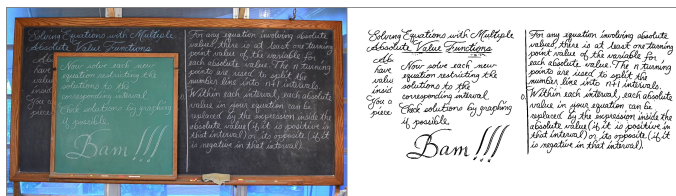 Solving Equations with Multiple
Absolute Value Functions
Abs
have
value
insid
You a
piece
Now solve each new
equation restricting the
solutions to the
corresponding interval.
Check solutions by graphing
if possible.
Bam!!!
For any equation involving absolute
values, there is at least one turning
point value of the variable for
each absolute value. The n turning
points are used to split the
number line into n+1 intervals.
Within each interval, each absolute
value in your equation can be
replaced by the expression inside the
absolute value (if it is positive in
that interval) or its opposite (if it
is negative in that interval).
Solving Equations with Multiple
Absolute Value Functions
Abs
have
value
insid
You a
piece
Now solve each new
equation restricting the
solutions to the
corresponding interval.
Check solutions by graphing
if possible.
Bam!!!
For any equation involving absolute
values, there is at least one turning
point value of the variable for
each absolute value. The n turning
points are used to split the
number line into n+1 intervals.
Within each interval, each absolute
value in your equation can be
replaced by the expression inside the
absolute value (if it is positive in
that interval) or its opposite (if it
is negative in that interval).